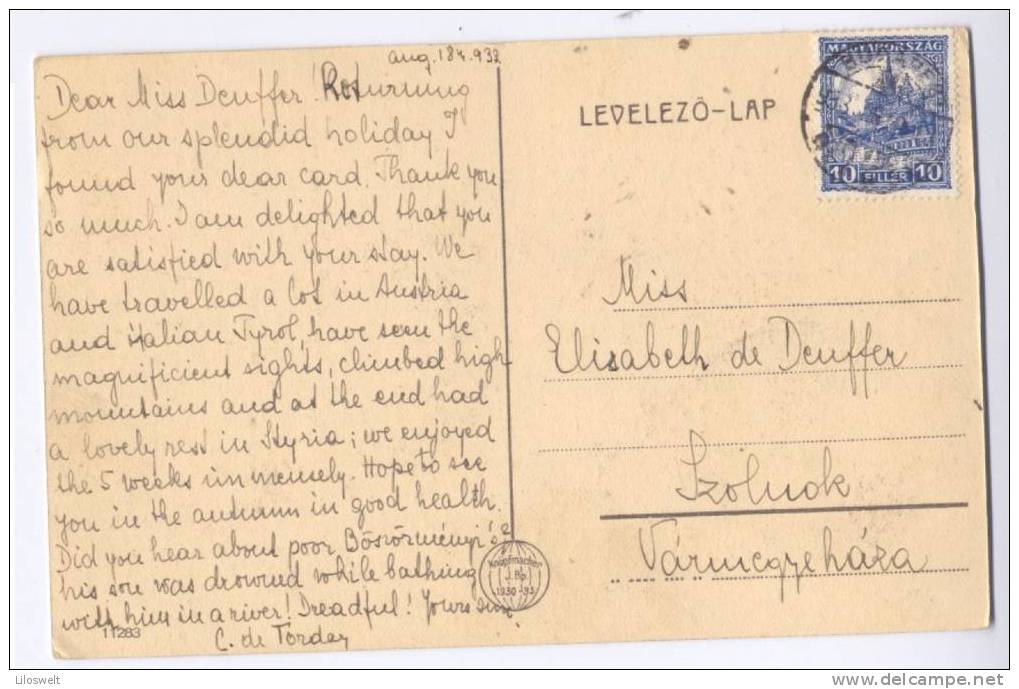 aug. 18 4. 932
Dear Miss Deuffer! Returning
from our splendid holiday I
found your dear card. Thank you
so much. I am delighted that you
are satisfied with your stay. We
have travelled a lot in Austria
and italian Tyrol, have seen the
magnificient sights, climbed high
mountains and at the end had
a lovely rest in Styria; we enjoyed
the 5 weeks immensely. Hope to see
you in the autumn in good health.
Did you hear about poor Böszörményi's?
his son was drownd while bathing
with him in a river! Dreadful! Yours
C. de Torday
11283
Knopfmacher
J. Bp.
1930-33
LEVELEZŐ-LAP
MAGYARORSZÁG
10 FILLÉR 10
BUDAPEST
Miss
Elisabeth de Deuffer
Szolnok
Vármegyeháza
Liloswelt
delcampe.net